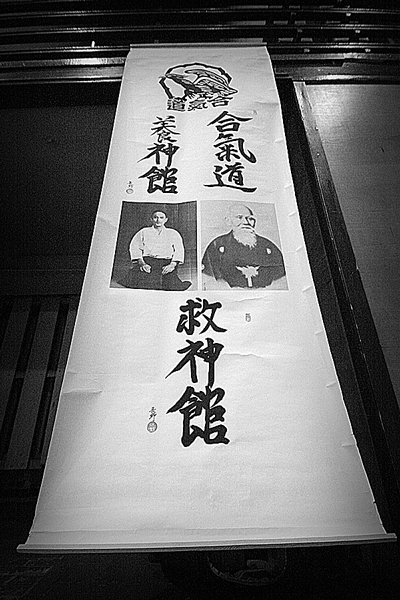 合氣道
合氣道
養神館
救神館